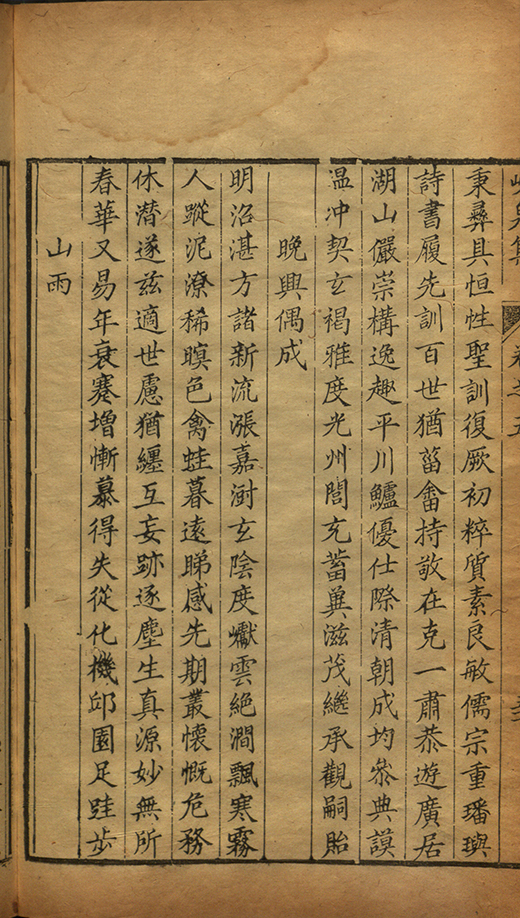 卷之五
秉彝具恒性聖訓復厥初粹質素良敏儒宗重璠璵
詩書履先訓百世猶菑畬持敬在克一肅恭遊廣居
湖山儼崇構逸趣平川鱸優仕際清朝成均叅典謨
温冲契玄褐雅度光州閭充蓄冀滋茂繼承觀嗣貽
晚興偶成
明沼湛方諸新流漲嘉澍玄陰度巘雲絕澗飄寒霧
人蹤泥潦稀暝色禽蛙暮遠睇感先期叢懷慨危務
休潜遂兹適世慮猶纏互妄跡逐塵生真源妙無所
春華又易年衰蹇增慚慕得失從化機邱園足跬步
山雨